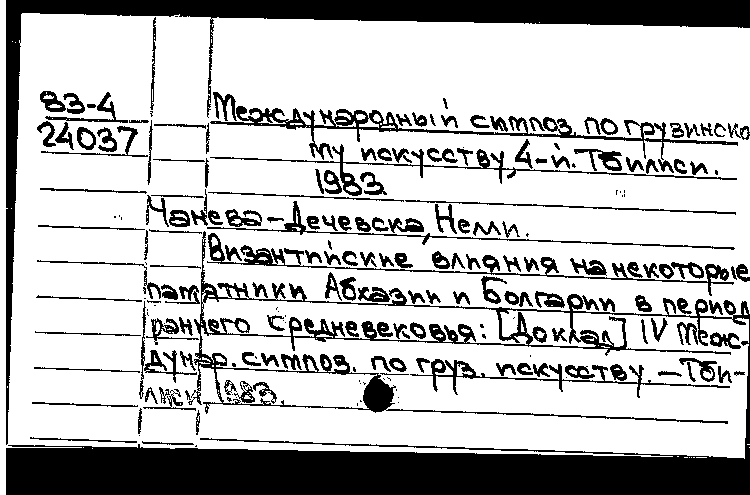 83-4
24037
Международный симпоз. по грузинско
му искусству, 4-й. Тбилиси.
1983.
Чанева-Дечевска, Нелли.
Византийские влияния на некоторые
памятники Абхазии и Болгарии в период
раннего средневековья: [Доклад] IV Меж-
дунар. симпоз. по груз. искусству. — Тби-
лиси, 1983.